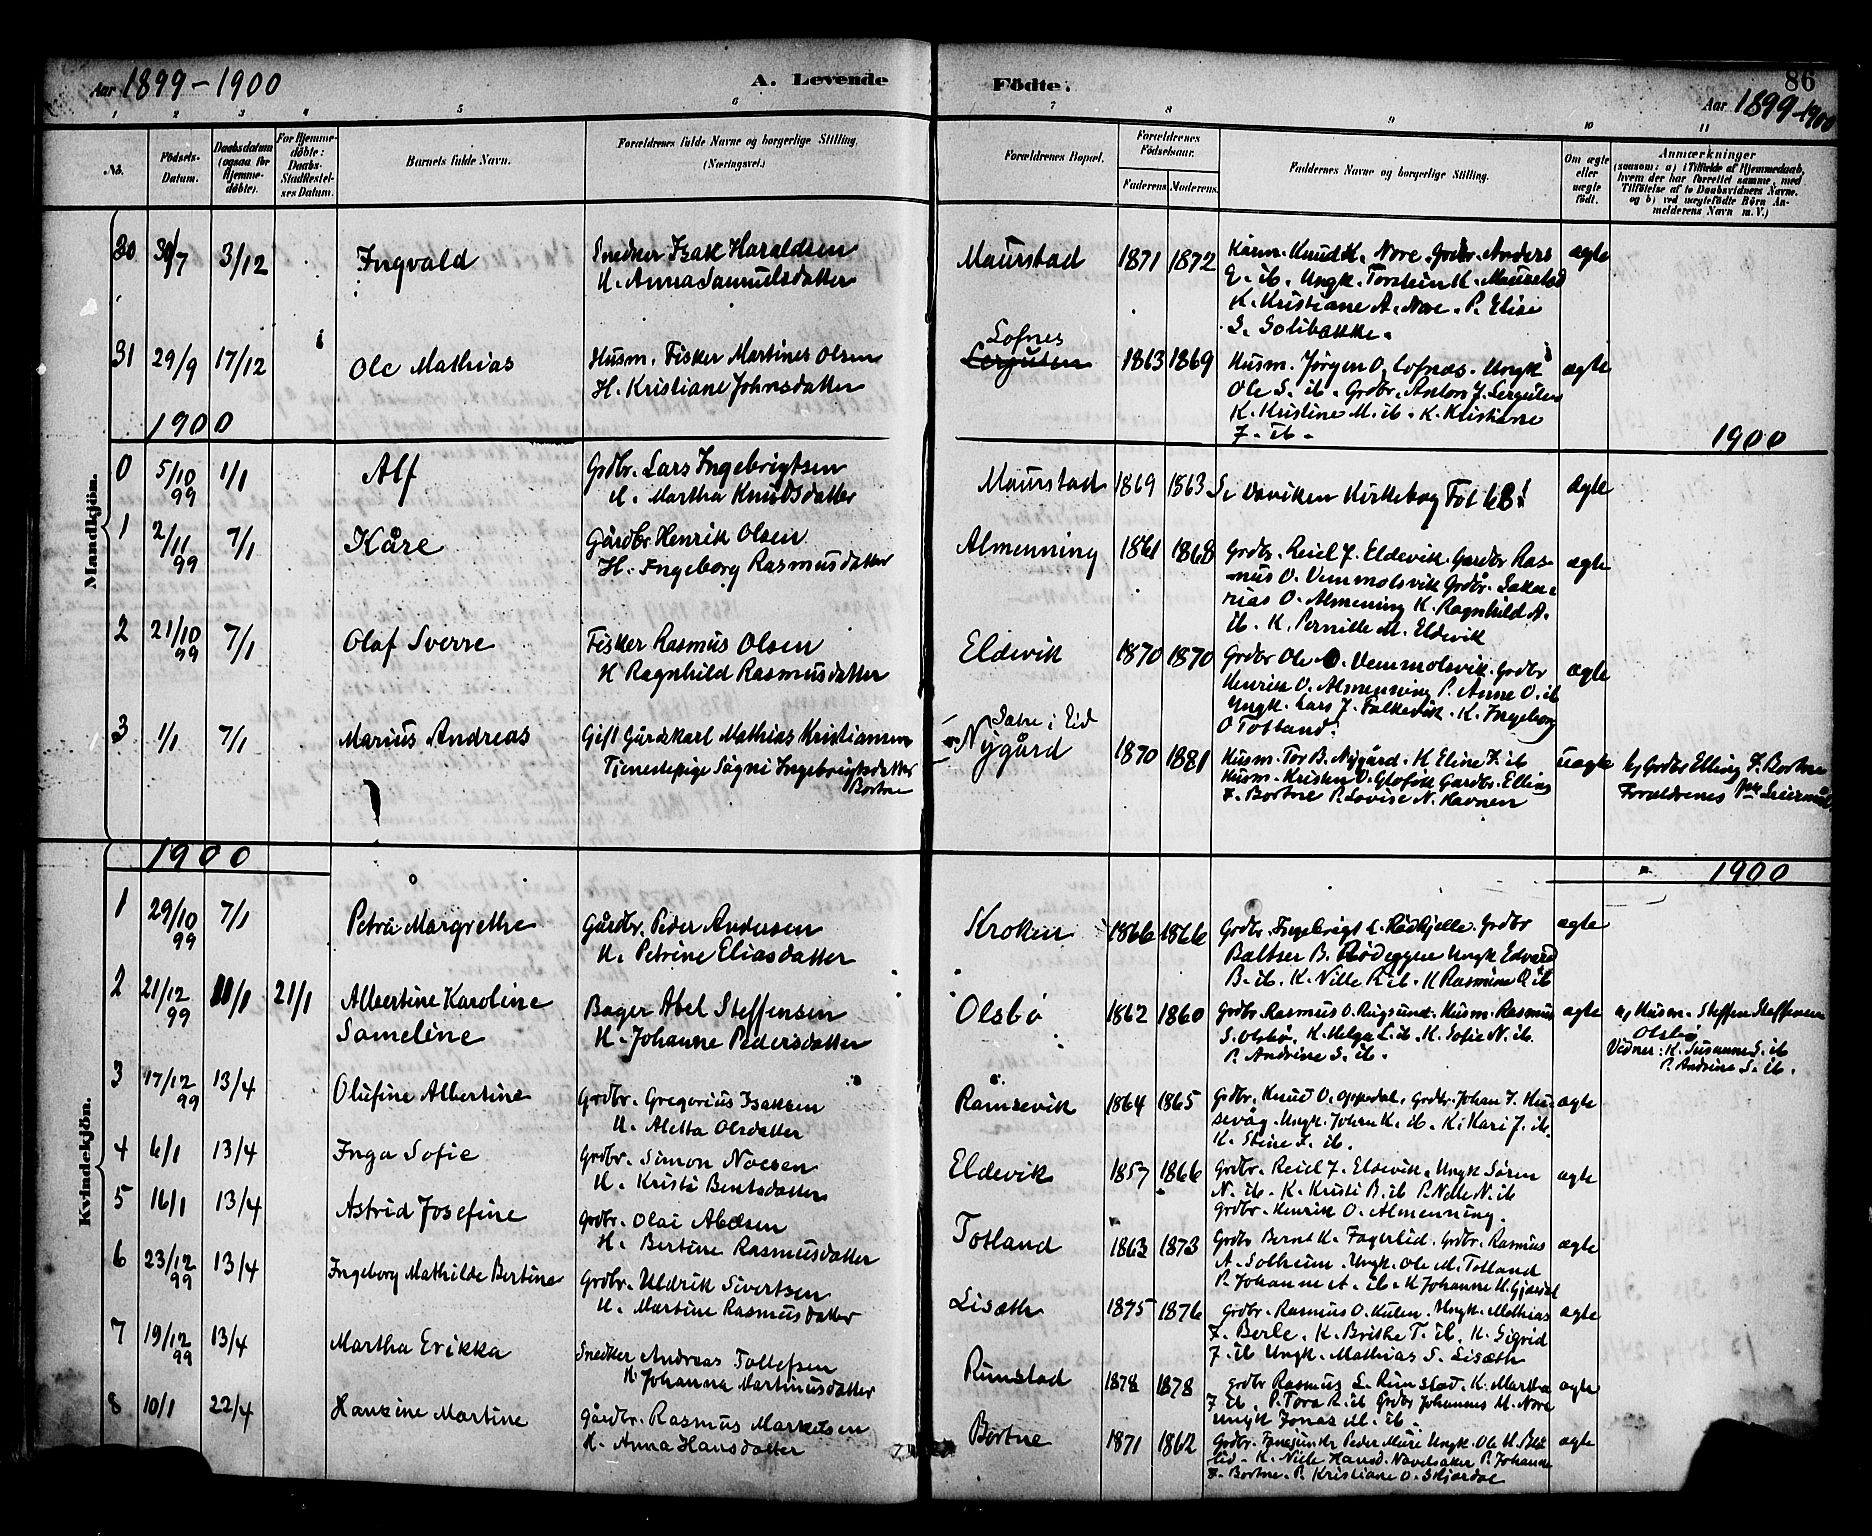 Aar 1899-1900
A. Levende Födte.
86
Aar 1899-1900
1 2 3 4 5 6 7 8 9 10 11
No.
Födsels-Datum.
Daabsdatum (ogsaa for Hjemme-döbte).
For Hjemme-döbte: Daabs-Stadfæstel-ses Datum.
Barnets fulde Navn.
Forældrenes fulde Navne og borgerlige Stilling. (Næringsvei.)
Forældrenes Bopæl.
Forældrenes Födselsaar.
Faderens. Moderens.
Faddernes Navne og borgerlige Stilling.
Om ægte eller uægte födt.
Anmærkninger
(saasom: a) i Tilfælde af Hjemmedaab,
hvem der har forrettet samme, med
Tilföielse af to Daabsvidners Navne.
og b) ved uægtefödte Börn An-
melderens Navn m. V.)
Mandkjön.
30 30/7 3/12 Ingvald
Snedker Isak Haraldsen
H. Anna Samuelsdatter
Maurstad 1871 1872
Kårm. Knud K. Nore. Grdbr. Anders
E. ib. Ungk. Torstein K. Maurstad
K. Kristiane A. Nore. P. Elise
S. Solibakke.
ægte
31 29/9 17/12 Ole Mathias
Husm. Fisker Martines Olsen
H. Kristiane Johnsdatter
Lofnes
Lerguten 1863 1869
Husm. Jørgen O. Lofnes. Ungk
Ole S. ib. Grdbr. Anton J. Lerguten
K. Kristine M. ib. K. Kristiane
J. ib.
ægte
1900
1900
0 5/10 99 1/1 Alf
Grdbr. Lars Ingebrigtsen
H. Martha Knudsdatter
Maurstad 1869 1863
Se Daviken Kirkebog Fol 68!
Ægte
1 2/11 99 7/1 Kåre
Gårdbr Henrik Olsen
H. Ingeborg Rasmusdatter
Almenning 1861 1868
Grdbr. Reiel J. Eldevik. Gardbr Ras-
mus O. Vemmolsvik Grdbr. Saka-
rias O. Almening K. Ragnhild A.
ib. K. Pernille M. Eldevik
ægte
2 21/10 99 7/1 Olaf Sverre
Fisker Rasmus Olsen
H Ragnhild Rasmusdatter
Eldevik 1870 1870
Grdbr Ole O. Vemmolsvik. Grdbr
Henrik O. Almenning P. Anne O. ib
Ungk. Lars J. Falkevik. K. Ingeborg
O Totland.
ægte
3 1/1 7/1 Marius Andreas
Gift Gårdskarl Mathias Kristiansen
Tjenestepige Sagni Ingebrigtsdatter
Bortne
Sætre i Eid
Nygård 1870 1881
Husm. Tor B. Nygård. K Eline J. ib
Husm. Kristen O. Gloføk Gardbr. Elling
J. Bortne P. Lovise N. Havnen
uægte
b) Grdbr Elling J. Bortne
Forældrenes Leiermål
1900
1900
Kvindekjön.
1 29/10 99 7/1 Petra Margrethe
Gårdbr. Peder Andersen
H. Petrine Eliasdatter
Kroken 1866 1866
Grdbr. Ingebrigt L. Rødkjelle. Grdbr
Baltser B. Rødeggen Ungk Edvard
B. ib. K. Nille R. ib. K Rasmine O ib
ægte
2 21/12 99 11/1 21/1 Albertine Karoline
Sameline
Bager Abel Steffensen
H. Johanne Pedersdatter
Olsbø 1862 1860
Grdbr. Rasmus O. Rugsund. Husm. Rasmus
S. Olsbø. K. Helga L. ib. K. Sofie N. ib.
P. Andrine S. ib.
ægte
a) Husm. Steffen Steffensen
Olsbø
Vidner: K. Susanne S. ib
P. Andrine S. ib.
3 17/12 99 13/4 Olufine Albertine
Grdbr. Gregorius Isaksen
H. Aletta Olsdatter
Ramsevik 1864 1865
Grdbr. Knud O. Oppedal. Grdbr. Johan J. Hu-
sevåg. Ungk. Johan K. ib. K. Kari J. ib.
K. Stine J. ib.
ægte
4 6/1 13/4 Inga Sofie
Grdbr. Simon Noesen
H. Kristi Bentsdatter
Eldevik 1857 1866
Grdbr. Reiel J. Eldevik. Ungk Søren
N. ib. K. Kristi B. ib P. Nille N. ib
Grdbr. Henrik O. Almenning.
ægte
5 16/1 13/4 Astrid Josefine
Grdbr. Olai Abelsen
H. Bertine Rasmusdatter
Totland 1863 1873
Grdbr Bernt K. Fagerlid. Grdbr. Rasmus
A. Solheim. Ungk. Ole M. Totland
P. Johanne A. ib. K Johanne H. Gjærdal
ægte
6 23/12 99 13/4 Ingeborg Mathilde Bertine
Grdbr. Uldrik Sivertsen
H. Martine Rasmusdatter
Lisæth 1875 1876
Grdbr. Rasmus O. Hulen. Ungk. Mathias
J. Berle. K. Brithe T. ib. K. Sigrid
J. ib Ungk. Mathias S. Lisæth
ægte
7 19/12 99 13/4 Martha Erikka
Snedker Andreas Tollefsen
H. Johanna Martinusdatter
Rimstad 1878 1878
Grdbr Rasmus L. Rimstad. K. Martha
J. ib. P. Tora R. ib Grdbr Johannes M. Nore
Ungk Jonas M. ib.
ægte
8 10/1 22/4 Hansine Martine
Gårdbr. Rasmus Markusen
H. Anna Hansdatter
Bortne 1871 1862
Grdbr. Peder Ungk. Ole H.
lid. K. Nille Hansd. P. Johanne
J. Bortne. P. Kristiane O. Skjærdal
ægte